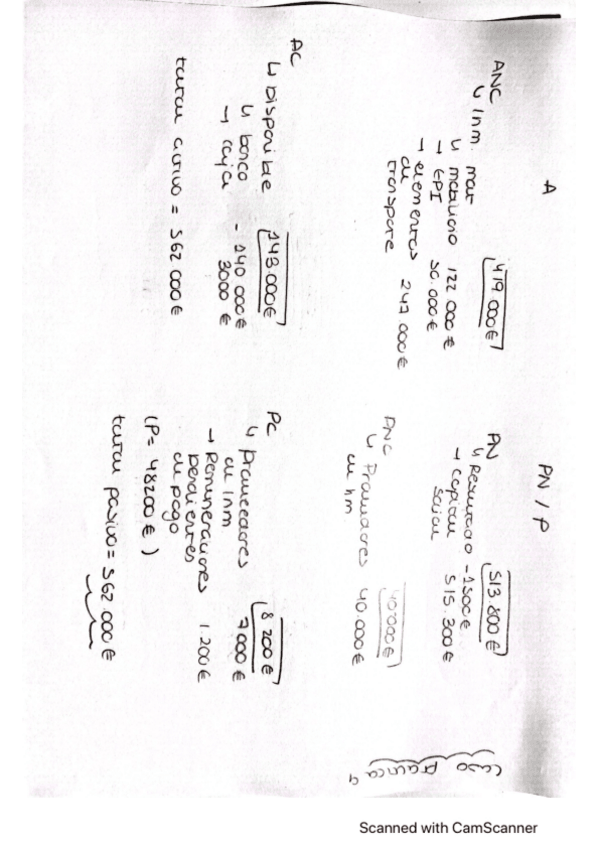 Caso Práctica 4
A
PN / P
ANC
↳ Inm. mat 419.000€
↳ mobiliario 122.000€
→ EPI 50.000€
→ elementos de transporte 247.000€
PN 513.800€
↳ Resultado -1500€
→ Capital social 515.300€
PNC 40.000€
↳ Proveedores de Inm. 40.000€
AC
↳ Disponible 143.000€
↳ banco - 140.000€
→ caja 3000€
total activo = 562.000€
PC 8.200€
↳ Proveedores de Inm 7000€
→ Remuneraciones pendientes de pago 1.200€
(P= 48200€)
total pasivo = 562.000€
Scanned with CamScanner